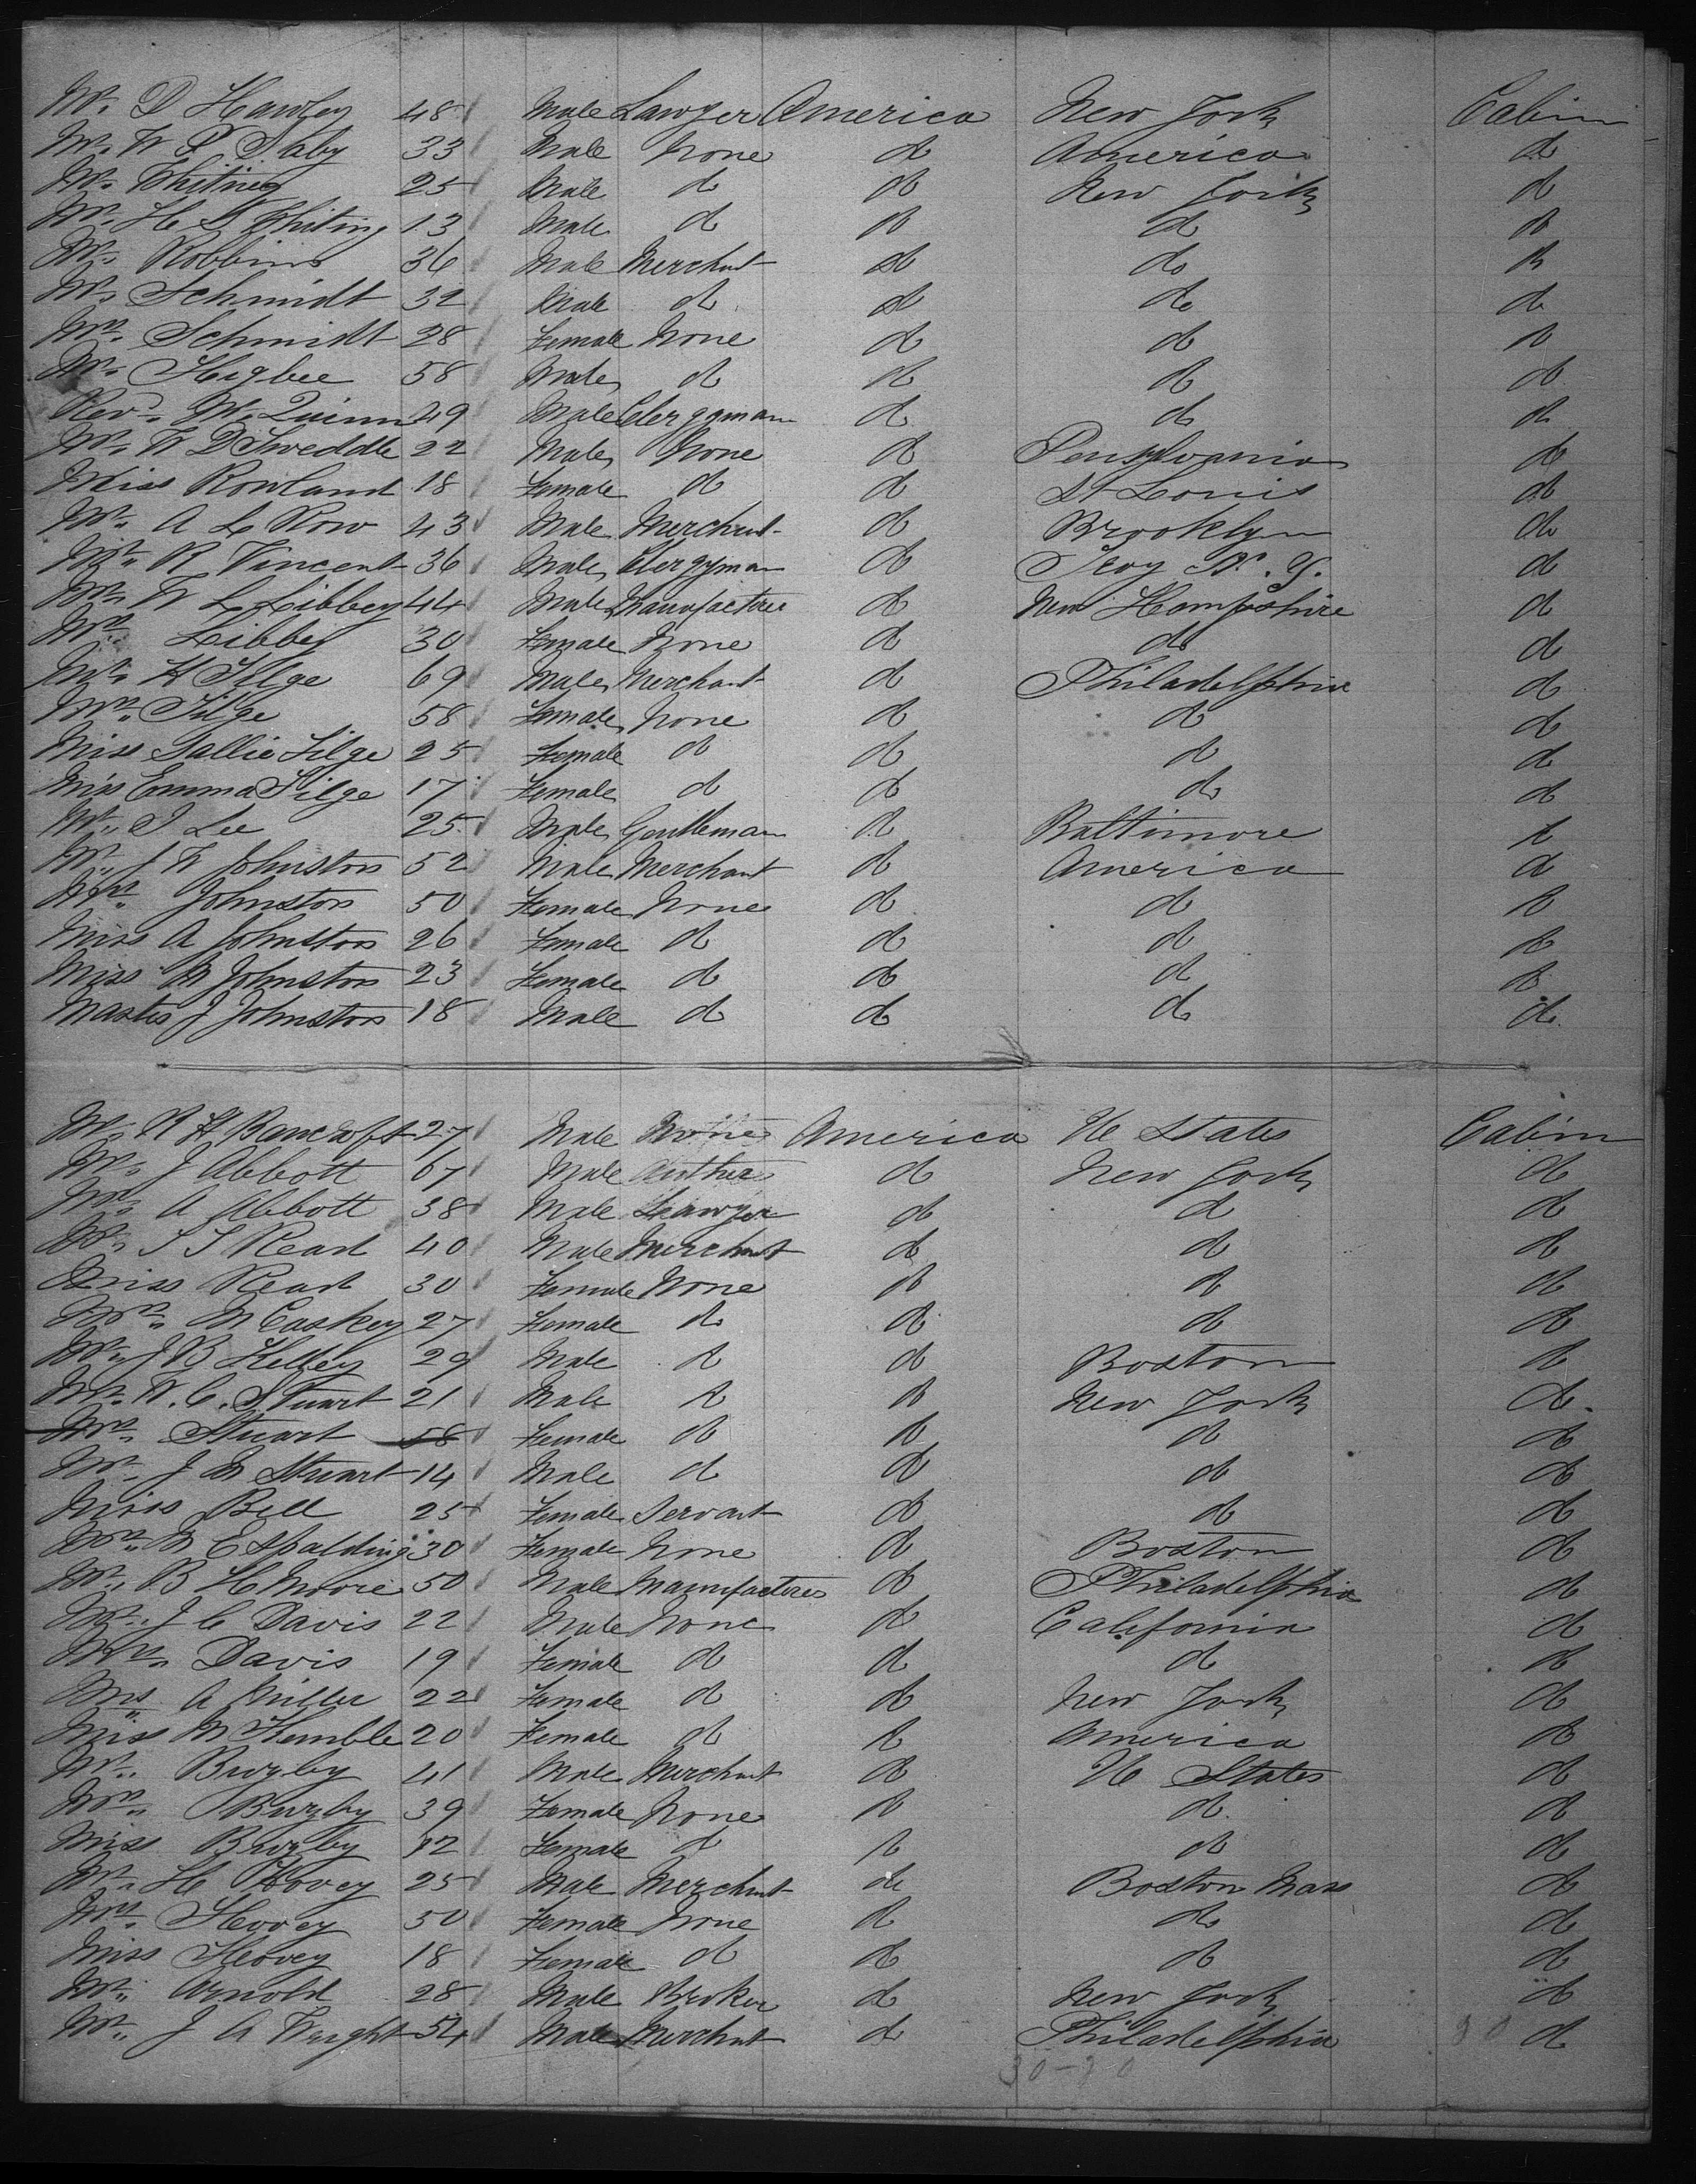 Mr. D Hawley 48 Male Lawyer America New York Cabin
Mr. W P 33 Male None do America do
Mr. Whitney 25 Male do do New York do
Mr. H Whiting 13 Male do do do do
Mr. Robbins 36 Male Merchant do do do
Mr. Schmidt 32 Male do do do do
Mrs. Schmidt 28 Female None do do do
Mr. Higbee 58 Male do do do do
Revd. Mr. Quinn 49 Male Clergyman do do do
Mr. W D Tweddle 22 Male None do Pensylvania do
Miss Rowland 18 Female do do St Louis do
Mr. A L Row 43 Male Merchant do Brooklyn do
Mr. R Vincent 36 Male Clergyman do Troy N. Y. do
Mr. W L Libbey 44 Male Manufacturer do New Hampshire do
Mrs. Libbey 30 Female None do do do
Mr. H Tilge 69 Male Merchant do Philadelphia do
Mrs. Tilge 58 Female None do do do
Miss Sallie Tilge 25 Female do do do do
Miss Emma Tilge 17 Female do do do do
Mr. J Lee 25 Male Gentleman do Baltimore do
Mr. J W Johnston 52 Male Merchant do America do
Mrs. Johnston 50 Female None do do do
Miss A Johnston 26 Female do do do do
Miss M Johnston 23 Female do do do do
Master J Johnston 18 Male do do do do
Mr. R H Bancroft 27 Male None America U States Cabin
Mr. J Abbott 67 Male Author do New York do
Mr. A Abbott 38 Male Lawyer do do do
Mr. S S Read 40 Male Merchant do do do
Miss Read 30 Female None do do do
Mrs. McCaskey 27 Female do do do do
Mr. J B Kelley 29 Male do do Boston do
Mr. W. C. Stuart 21 Male do do New York do.
Mrs. Stuart 58 Female do do do do
Mr. J M Stuart 14 Male do do do do
Miss Bell 25 Female Servant do do do
Mrs. M E Spalding 30 Female None do Boston do
Mr. B H Moore 50 Male Manufacturer do Philadelphia do
Mr. J C Davis 22 Male None do California do
Mrs. Davis 19 Female do do do do
Mrs A Miller 22 Female do do New York do
Miss M Kemble 20 Female do do America do
Mr. Burgby 41 Male Merchant do U States do
Mrs. Burgby 39 Female None do do do
Miss Burgby 12 Female do do do do
Mr. H Hovey 25 Male Merchant do Boston Mass do
Mrs. Hovey 50 Female None do do do
Miss Hovey 18 Female do do do do
Mr. Arnold 28 Male Broker do New York do
Mr. J A Wright 54 Male Merchant do Philadelphia do